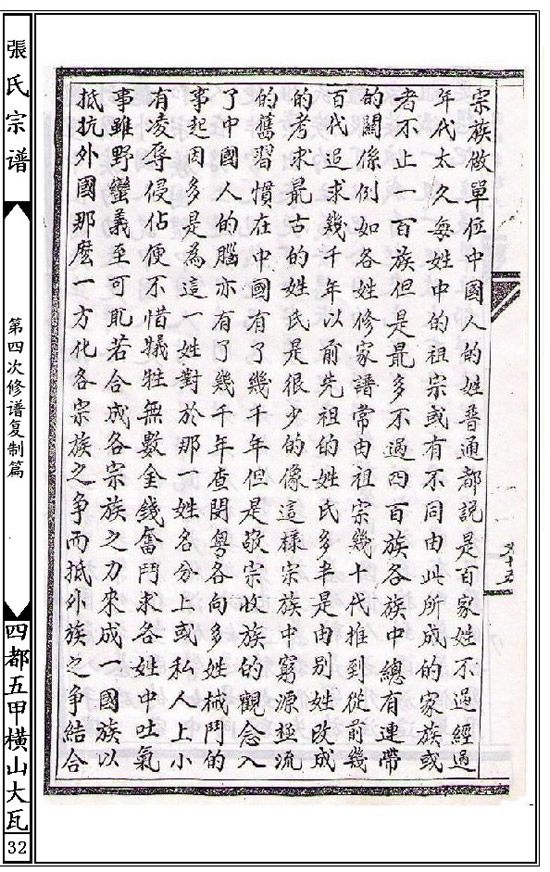 宗族做單位中國人的姓普通都說是百家姓不過經過
年代太久每姓中的祖宗或有不同由此所成的家族或
者不止一百族但是最多不過四百族各族中總有連帶
的關係例如各姓修家譜常由祖宗幾十代推到從前幾
百代追求幾千年以前先祖的姓氏多半是由別姓改成
的考求最古的姓氏是很少的像這樣宗族中窮源極流
的舊習慣在中國有了幾千年但是敬宗收族的觀念入
了中國人的腦亦有了幾千年查閩粵各向多姓械鬥的
事起因多是為這一姓對於那一姓名分上或私人上小
有凌辱侵佔便不惜犧牲無數金錢奮鬥求各姓中吐氣
事雖野蠻義至可取若合成各宗族之力來成一國族以
抵抗外國那麼一方化各宗族之爭而抵外族之爭結合
張氏宗谱
第四次修谱复制篇
四都五甲横山大瓦
32